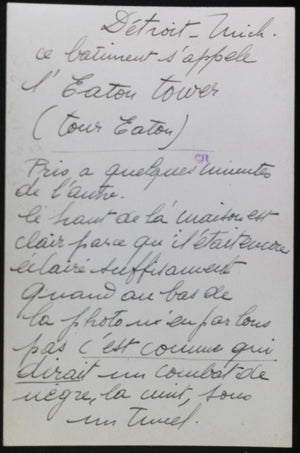 Détroit - Mich.
ce batiment s'appele
l'Eaton tower
(tour Eaton)
Pris a quelques minutes
de l'autre.
le haut de la maison est
clair parce qu'il était encore
éclairé suffisament
quand au bas de
la photo n'en parlons
pas c'est comme qui
dirait un combat de
nègre, la nuit, sous
un Tunel.